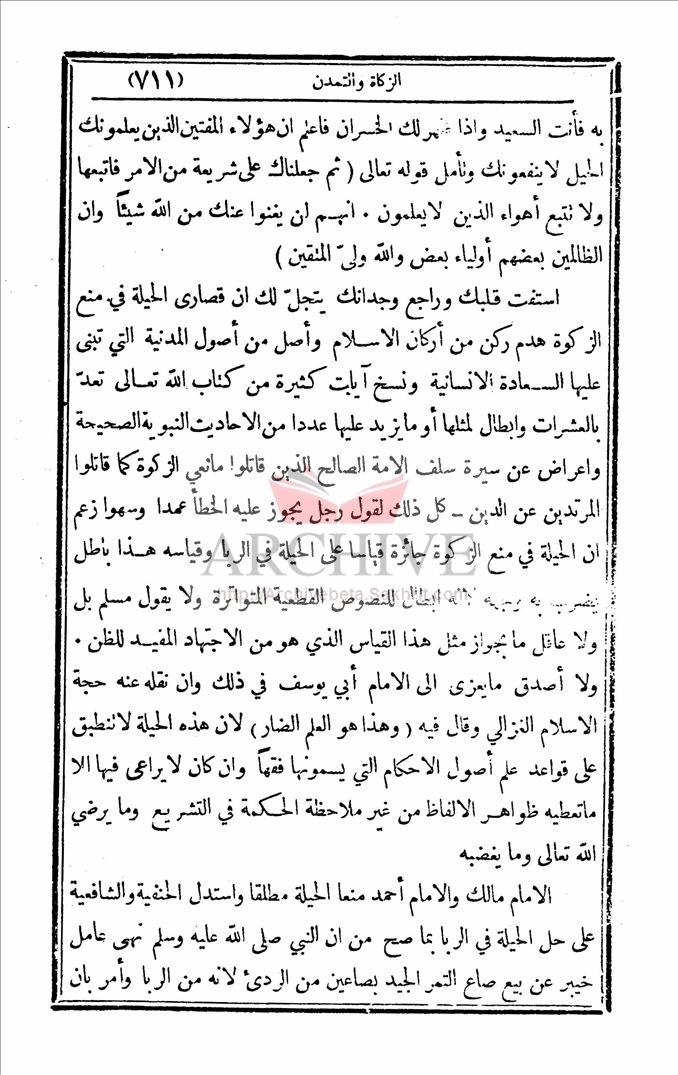 الزكاة والتمدن (٧١١)
به فأنت السعيد واذا ظهر لك الخسران فاعلم ان هؤلاء المفتين الذين يعلمونك
الحيل لا ينفعونك وتأمل قوله تعالى ( ثم جعلناك على شريعة من الامر فاتبعها
ولا تتبع أهواء الذين لا يعلمون ٠ انهم لن يغنوا عنك من الله شيئاً وان
الظالمين بعضهم أولياء بعض والله ولىّ المتقين )
استفت قلبك وراجع وجدانك يتجلّ لك ان قصارى الحيلة في منع
الزكوة هدم ركن من أركان الاسلام وأصل من أصول المدنية التي تبنى
عليها السعادة الانسانية ونسخ آيات كثيرة من كتاب الله تعالى تعدّ
بالعشرات وابطال لمثلها أو ما يزيد عليها عددا من الاحاديث النبوية الصحيحة
واعراض عن سيرة سلف الامة الصالح الذين قاتلوا مانعي الزكوة كما قاتلوا
المرتدين عن الدين ــ كل ذلك لقول رجل يجوز عليه الخطأ عمدا وسهوا زعم
ان الحيلة في منع الزكوة جائزة قياسا على الحيلة في الربا وقياسه هذا باطل
به ابطال للنصوص القطعية المتواترة ولا يقول مسلم بل
ولا عاقل ما بجواز مثل هذا القياس الذي هو من الاجتهاد المفيد للظن ٠
ولا أصدق ما يعزى الى الامام أبي يوسف في ذلك وان نقله عنه حجة
الاسلام الغزالي وقال فيه ( وهذا هو العلم الضار ) لان هذه الحيلة لا تنطبق
على قواعد علم أصول الاحكام التي يسمونها فقهاً وان كان لا يراعى فيها الا
ما تعطيه ظواهر الالفاظ من غير ملاحظة الحكمة في التشريع وما يرضي
الله تعالى وما يغضبه
الامام مالك والامام أحمد منعا الحيلة مطلقا واستدل الحنفية والشافعية
على حل الحيلة في الربا بما صح من ان النبي صلى الله عليه وسلم نهى عامل
خيبر عن بيع صاع التمر الجيد بصاعين من الردئ لانه من الربا وأمر بان
ARCHIVE
http://Archivebeta.Sakhrit.com